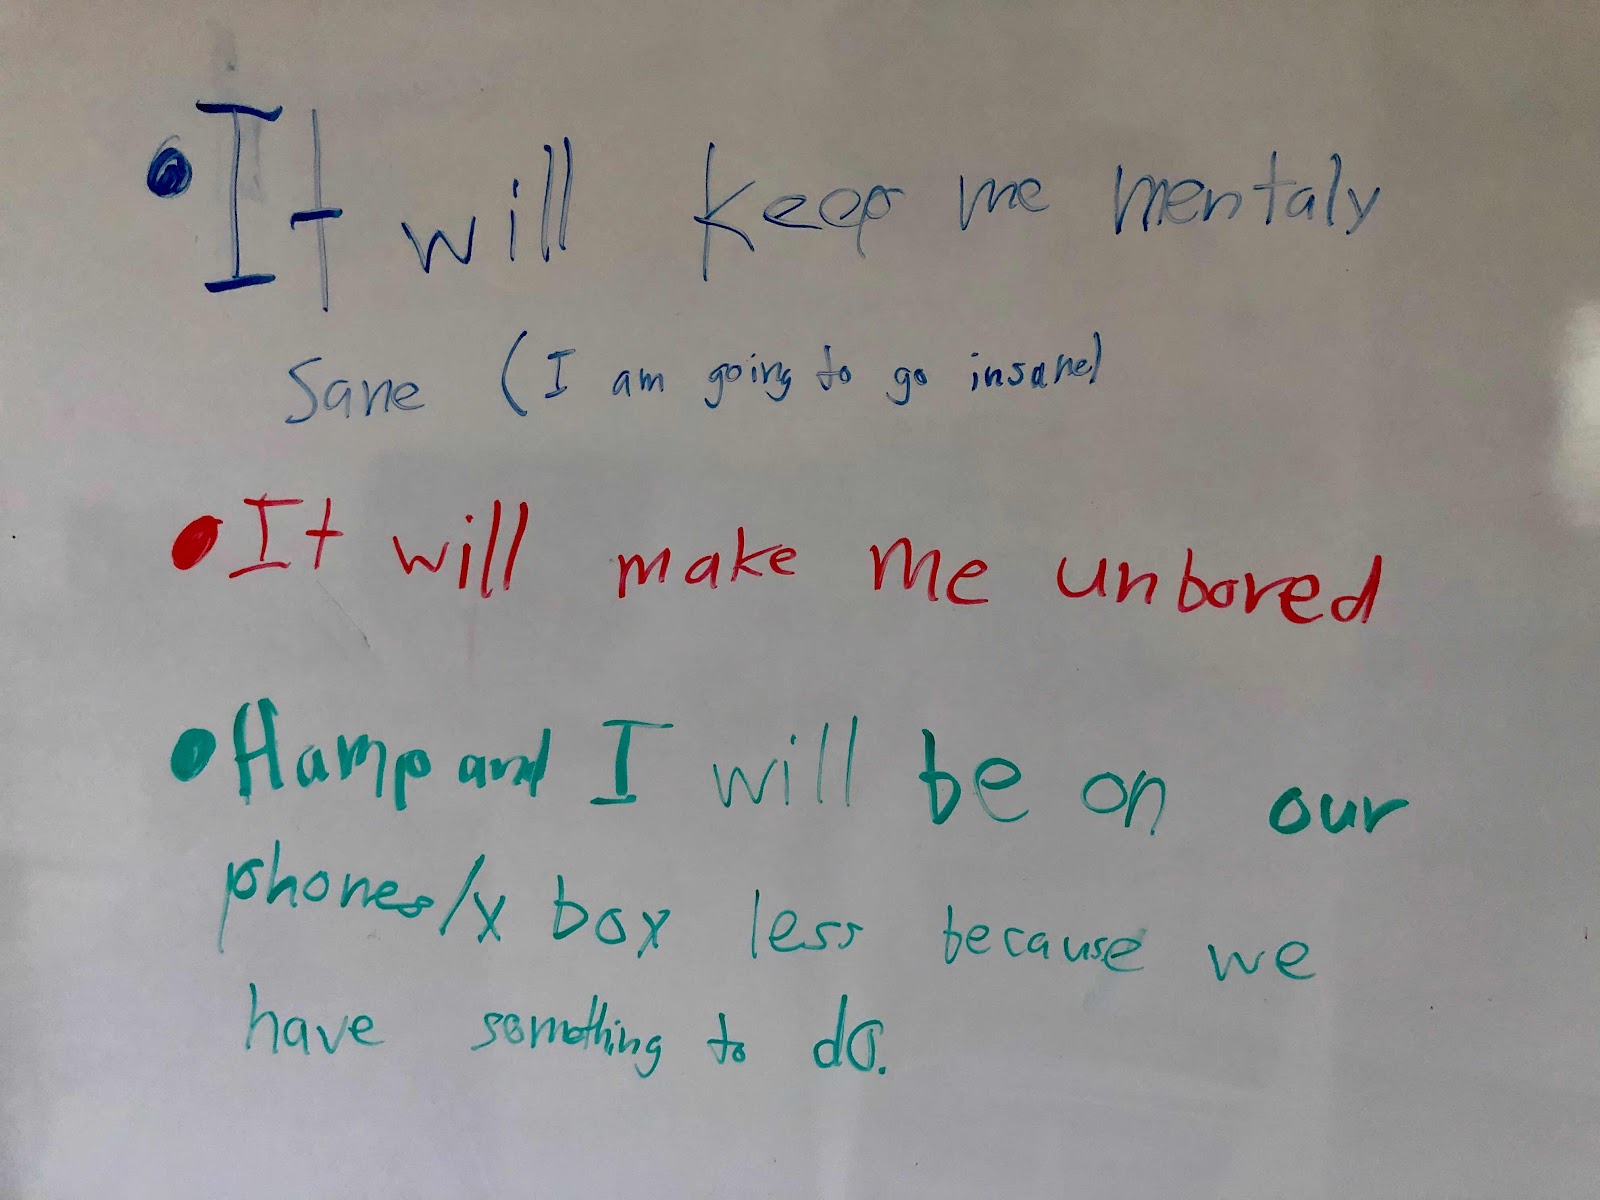 • It will keep me mentaly
sane (I am going to go insane)
• It will make me unbored
• Hamp and I will be on our
phones/x box less because we
have something to do.